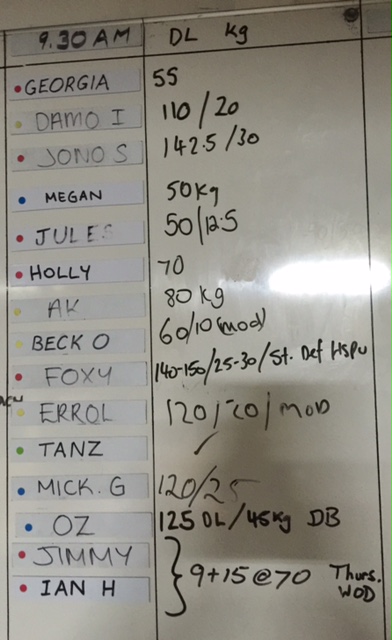 9.30 AM DL kg
GEORGIA 55
DAMO I 110/20
JONO S 142.5/30
MEGAN 50kg
JULES 50/12.5
HOLLY 70
AK 80 kg
BECK O 60/10 (mod)
FOXY 140-150/25-30/St. Def HSPU
ERROL 120/20/MOD
TANZ ✓
MICK. G 120/25
OZ 125 DL/45kg DB
JIMMY
IAN H } 9+15@70 Thurs.
WOD